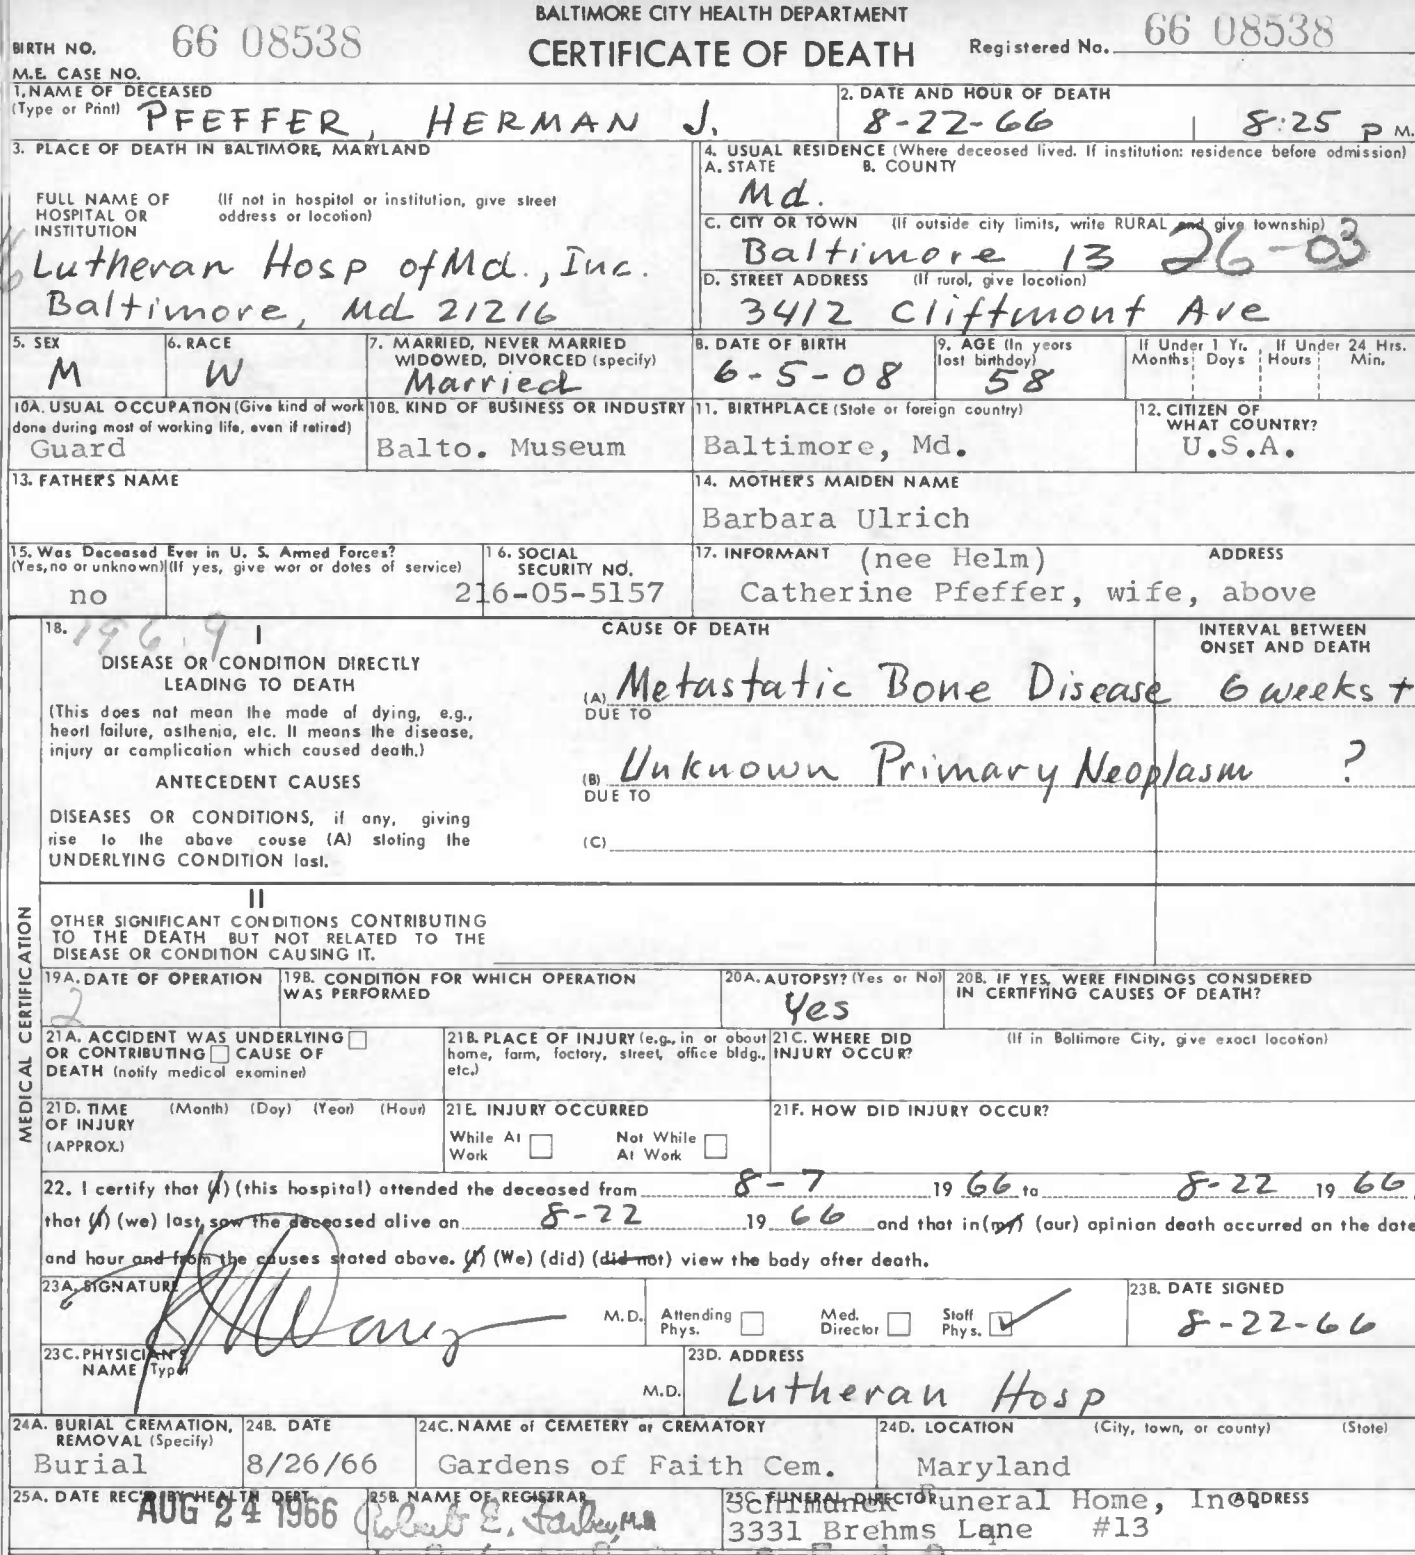 BALTIMORE CITY HEALTH DEPARTMENT
BIRTH NO. 66 08538 CERTIFICATE OF DEATH Registered No. 66 08538
M.E. CASE NO.
1. NAME OF DECEASED
(Type or Print) PFEFFER, HERMAN J.
2. DATE AND HOUR OF DEATH
8-22-66 8:25 P M.
3. PLACE OF DEATH IN BALTIMORE, MARYLAND
FULL NAME OF HOSPITAL OR INSTITUTION
(If not in hospital or institution, give street address or location)
Lutheran Hosp of Md., Inc.
Baltimore, Md 21216
4. USUAL RESIDENCE (Where deceased lived. If institution: residence before admission)
A. STATE B. COUNTY
Md.
C. CITY OR TOWN (If outside city limits, write RURAL and give township)
Baltimore 13 26-03
D. STREET ADDRESS (If rural, give location)
3412 Cliftmont Ave
5. SEX
M
6. RACE
W
7. MARRIED, NEVER MARRIED
WIDOWED, DIVORCED (specify)
Married
8. DATE OF BIRTH
6-5-08
9. AGE (In years
last birthday)
58
If Under 1 Yr. If Under 24 Hrs.
Months Days Hours Min.
10A. USUAL OCCUPATION (Give kind of work
done during most of working life, even if retired)
Guard
10B. KIND OF BUSINESS OR INDUSTRY
Balto. Museum
11. BIRTHPLACE (State or foreign country)
Baltimore, Md.
12. CITIZEN OF
WHAT COUNTRY?
U.S.A.
13. FATHER'S NAME
14. MOTHER'S MAIDEN NAME
Barbara Ulrich
15. Was Deceased Ever in U. S. Armed Forces?
(Yes, no or unknown) (If yes, give war or dates of service)
no
16. SOCIAL
SECURITY NO.
216-05-5157
17. INFORMANT (nee Helm) ADDRESS
Catherine Pfeffer, wife, above
MEDICAL CERTIFICATION
18. 196.9 I
DISEASE OR CONDITION DIRECTLY
LEADING TO DEATH
(This does not mean the mode of dying, e.g.,
heart failure, asthenia, etc. It means the disease,
injury or complication which caused death.)
ANTECEDENT CAUSES
DISEASES OR CONDITIONS, if any, giving
rise to the above cause (A) stating the
UNDERLYING CONDITION last.
CAUSE OF DEATH
INTERVAL BETWEEN
ONSET AND DEATH
(A) Metastatic Bone Disease 6 weeks +
DUE TO
(B) Unknown Primary Neoplasm ?
DUE TO
(C)
II
OTHER SIGNIFICANT CONDITIONS CONTRIBUTING
TO THE DEATH BUT NOT RELATED TO THE
DISEASE OR CONDITION CAUSING IT.
19A. DATE OF OPERATION
2
19B. CONDITION FOR WHICH OPERATION
WAS PERFORMED
20A. AUTOPSY? (Yes or No)
Yes
20B. IF YES, WERE FINDINGS CONSIDERED
IN CERTIFYING CAUSES OF DEATH?
21A. ACCIDENT WAS UNDERLYING
OR CONTRIBUTING CAUSE OF
DEATH (notify medical examiner)
21B. PLACE OF INJURY (e.g., in or about
home, farm, factory, street, office bldg.,
etc.)
21C. WHERE DID (If in Baltimore City, give exact location)
INJURY OCCUR?
21D. TIME (Month) (Day) (Year) (Hour)
OF INJURY
(APPROX.)
21E. INJURY OCCURRED
While At Work Not While At Work
21F. HOW DID INJURY OCCUR?
22. I certify that (I) (this hospital) attended the deceased from 8-7 19 66 to 8-22 19 66
that (I) (we) last saw the deceased alive on 8-22 19 66 and that in (my) (our) opinion death occurred on the date
and hour and from the causes stated above. (I) (We) (did) (did not) view the body after death.
23A. SIGNATURE
M.D.
Attending Phys. Med. Director Staff Phys.
23B. DATE SIGNED
8-22-66
23C. PHYSICIAN'S
NAME (Type)
M.D.
23D. ADDRESS
Lutheran Hosp
24A. BURIAL CREMATION,
REMOVAL (Specify)
Burial
24B. DATE
8/26/66
24C. NAME of CEMETERY or CREMATORY
Gardens of Faith Cem.
24D. LOCATION (City, town, or county) (State)
Maryland
25A. DATE REC'D BY HEALTH DEPT.
AUG 24 1966
25B. NAME OF REGISTRAR
Robert E. Farber, M.D.
25C. FUNERAL DIRECTOR ADDRESS
Schimunek Funeral Home, Inc.
3331 Brehms Lane #13